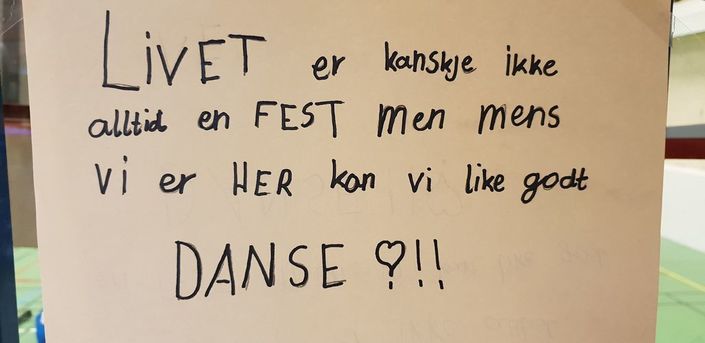 LiVET er kanskje ikke
alltid en FEST men mens
vi er HER kan vi like godt
DANSE ♡!!